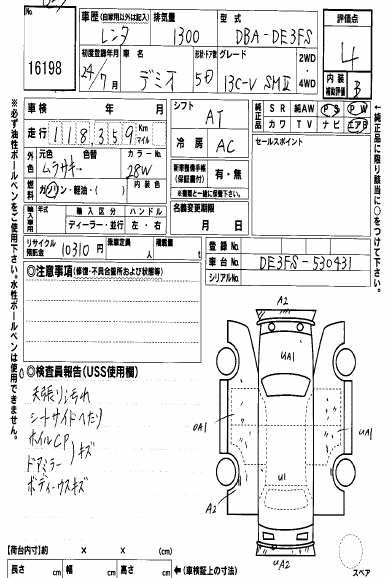 No.
16198
車歴(自家用以外は記入) レンタ
排気量 1300
型式 DBA-DE3FS
評価点 4
初度登録年月 24/7月
車名 デミオ
形状・ドア数 5D
グレード 13C-V SMⅡ
2WD・4WD
内装補助評価 B
車検 年 月
シフト AT
純正品 SR 純AW PS PW
カワ TV ナビ エアB
走行 118,359 Km マイル
冷房 AC
セールスポイント
外色 元色 ムラサキ 色替
カラーNo. 28W
内装色
燃料 ガソリン・軽油・( )
新車整備手帳(保証書付) 有・無
※書類と一緒に保管下さい。
輸入車用 年式 輸入区分 ハンドル
ディーラー・並行 左・右
名義変更期限 月 日
リサイクル預託金 10310円
乗車定員 人
積載量 t
登録No.
車台No. DE3FS-530431
シリアルNo.
◎注意事項(修復・不具合箇所および状態等)
◎検査員報告(USS使用欄)
天張り汚れ
シートサイドへたり
ホイルCP
ドアミラー キズ
ボディーウスキズ
A2
UA1
UA1
UA1
A2
U1
UA2
スペア
【荷台内寸】約 × × (cm)
長さ cm 幅 cm 高さ cm ←(車検証上の寸法)
※必ず油性ボールペンをご使用下さい。水性ボールペンは使用できません。
↑純正品に限り該当に○をつけて下さい。